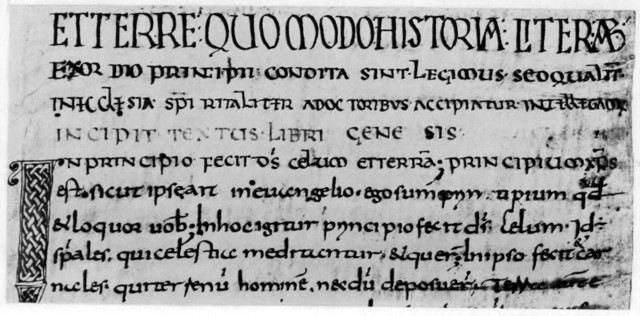 ET TERRE· QUOMODO HISTORIA· LITERAE
EXOR DIO PRINCIPII· CONDITA SINT· LEGIMUS SED QUALIT
IN ECCLESIA SPIRITALITER A DOCTORIBVS ACCIPIATUR
INCIPIT TEXTUS· LIBRI GENE SIS·
IN PRINCIPIO FECIT DS CELUM ET TERRA; PRINCIPIUM XPS
est· sicut ipse ait in euuangelio· ego sum qd
& loquor uob; In hoc igitur principio fecit ds celum· Id
spales· qui celestia meditantur· & quer In ipso fecit car
nales· qui terrenu homine· necdu deposuer